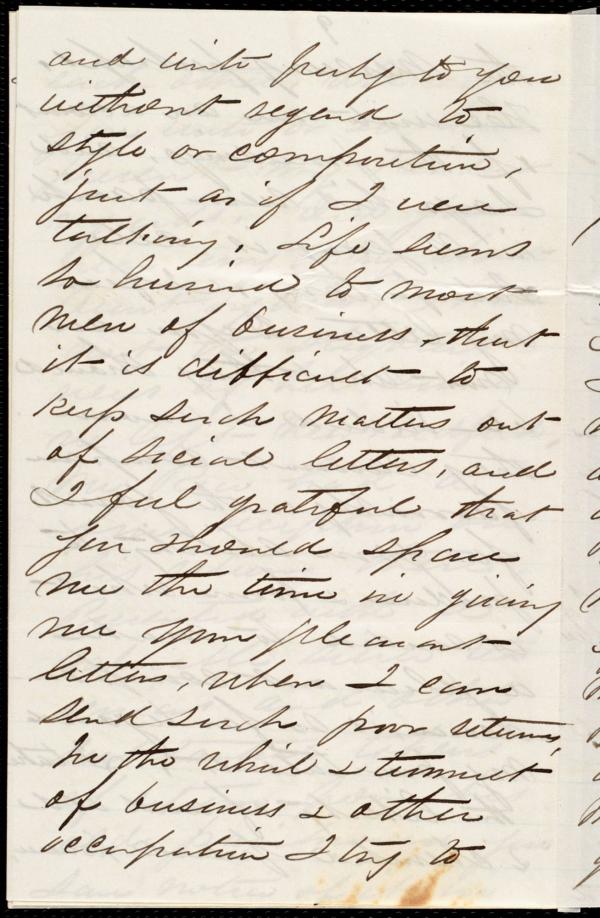 and write freely to you
without regard to
style or composition,
just as if I were
talking. Life seems
so hurried to most
men of business, that
it is difficult to
keep such matters out
of social letters, and
I feel grateful that
you should spare
me the time in giving
me your pleasant
letters, when I can
send such poor returns,
In the whirl & tumult
of business & other
occupation I try to